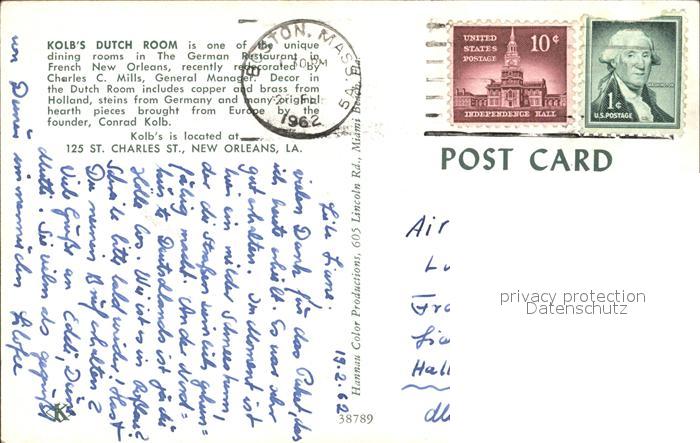 KOLB'S DUTCH ROOM is one of the unique
dining rooms in The German Restaurant in
French New Orleans, recently redecorated by
Charles C. Mills, General Manager. Decor in
the Dutch Room includes copper and brass from
Holland, steins from Germany and many original
hearth pieces brought from Europe by the
founder, Conrad Kolb.
Kolb's is located at
125 ST. CHARLES ST., NEW ORLEANS, LA.
BOSTON, MASS.
1962
UNITED
STATES
POSTAGE
10¢
INDEPENDENCE HALL
WASHINGTON
1¢
U.S. POSTAGE
POST CARD
Hannau Color Productions, 605 Lincoln Rd., Miami Beach, Fla.
38789
K
19.2.62
vielen Dank für das Paket, das
ich heute erhielt. Es war sehr
gut erhalten. Im Moment ist
hier ein milder Schneesturm,
der die Straßen
macht. An der Nord-
küste Deutschlands ist ja die
Hölle los. Wie ist es in
Schreibe bitte bald wieder! Hast
Du meinen Brief erhalten?
Viele Grüße an Eddi,
Sei vielmals gegrüßt
von Deinem
Air
Hall
privacy protection
Datenschutz